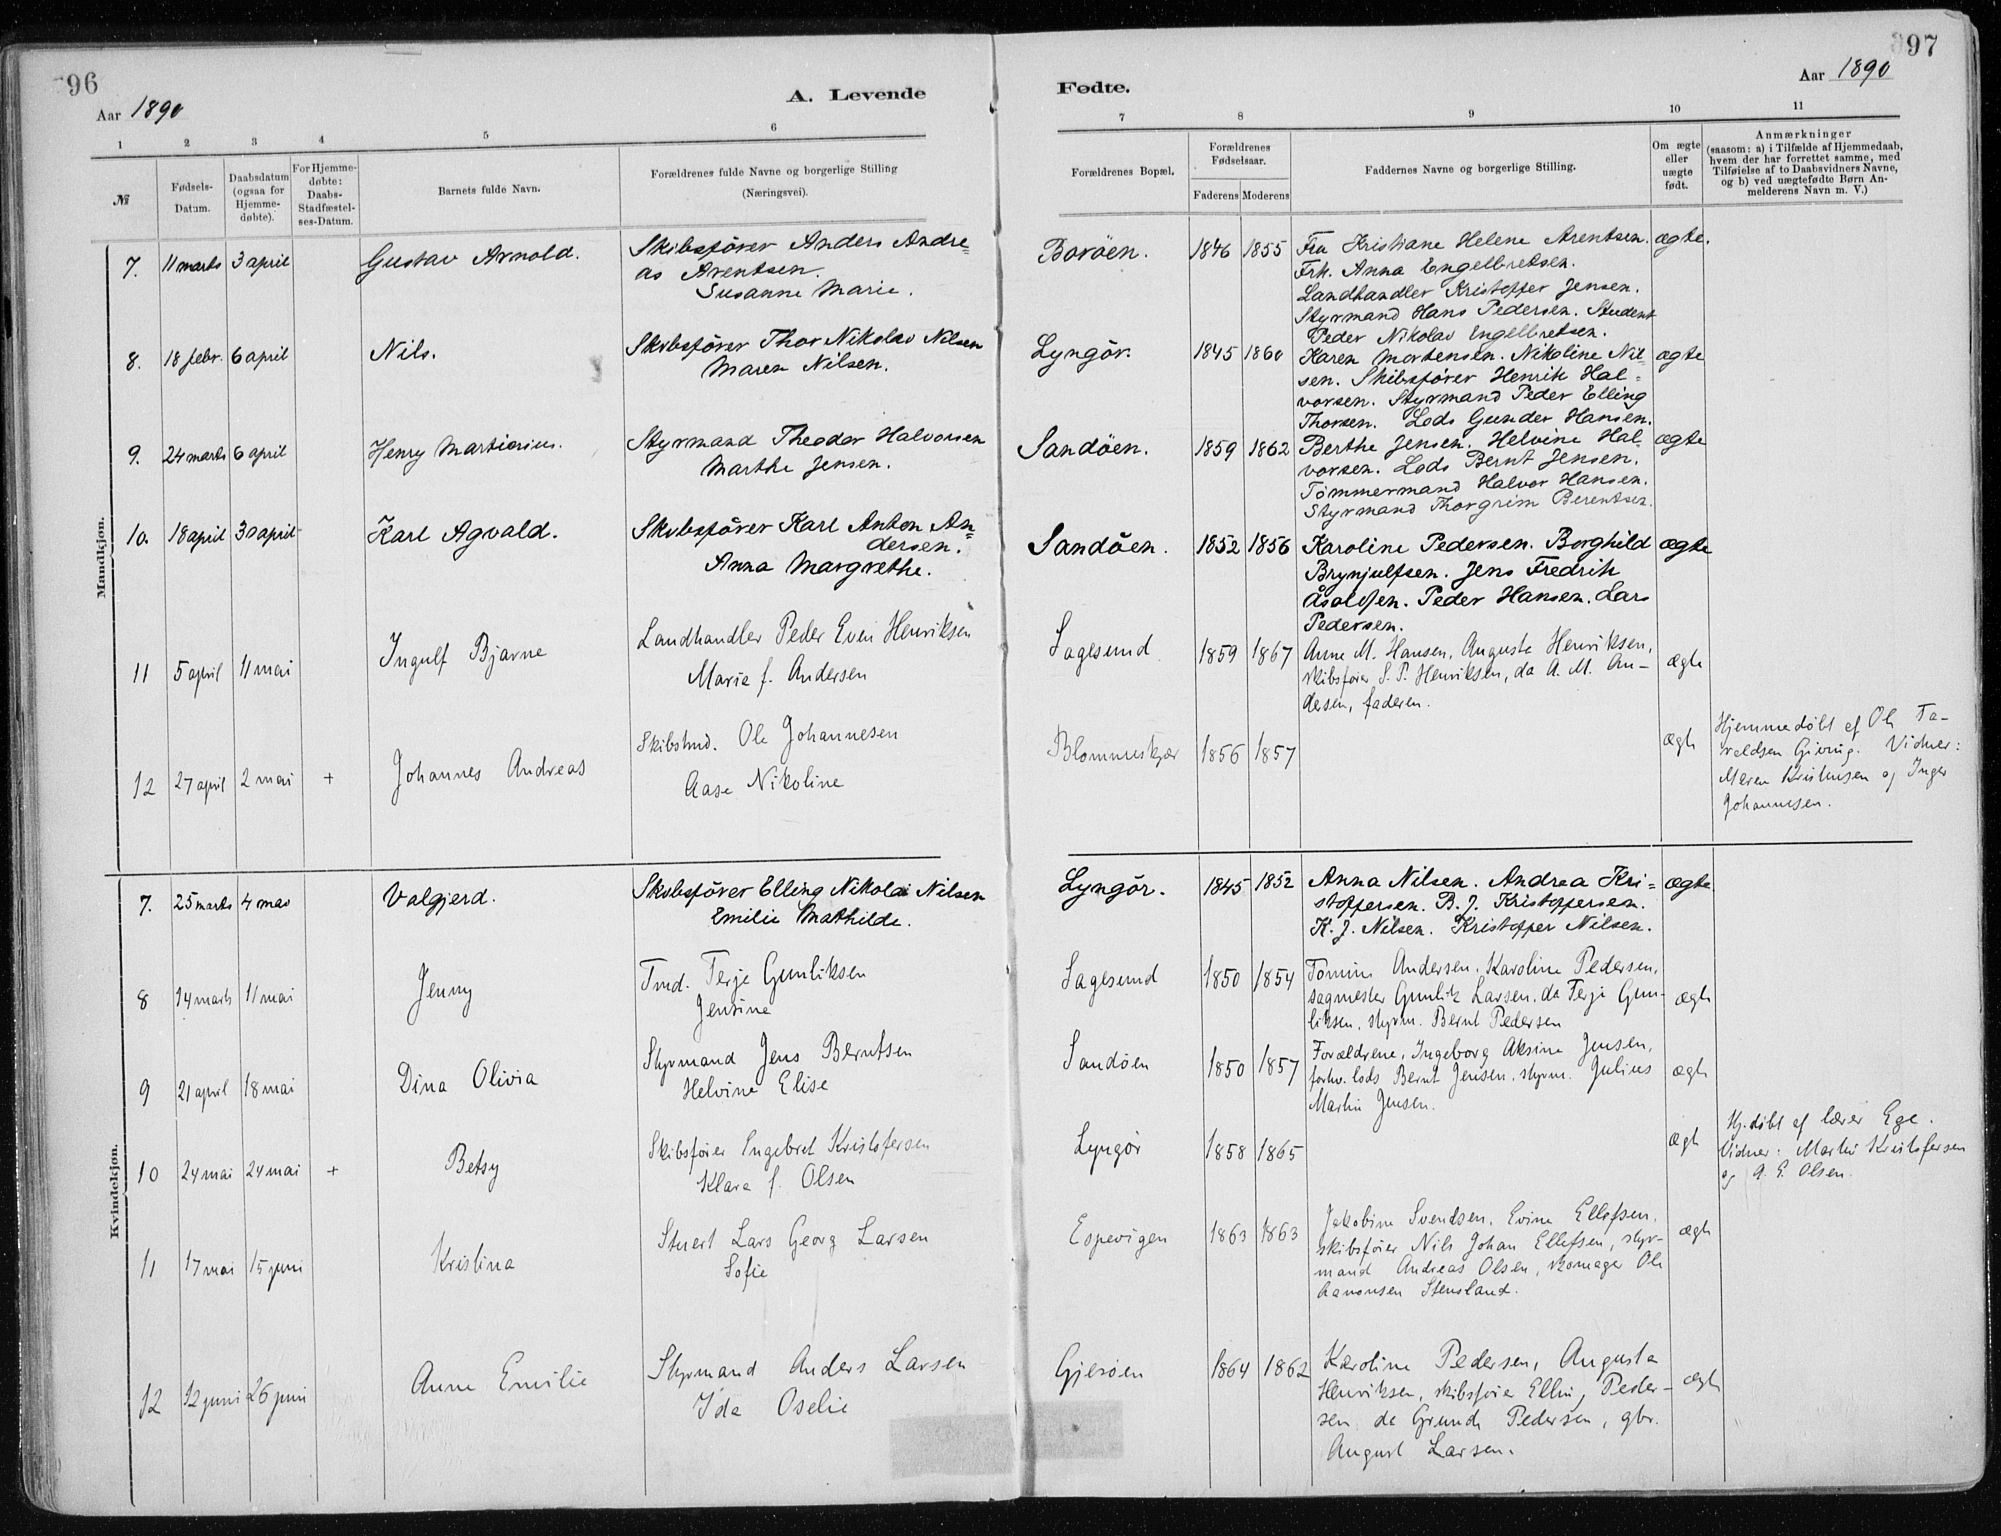 96
Aar 1890
A. Levende
1 2 3 4 5 6
№
Fødsels-Datum.
Daabsdatum (ogsaa for Hjemme-døbte).
For Hjemme-døbte: Daabs-Stadfæstel-ses-Datum.
Barnets fulde Navn.
Forældrenes fulde Navne og borgerlige Stilling
(Næringsvei).
Mandkjøn.
7. 11 marts 3 april Gustav Arnold. Skibsfører Anders Andre=
as Arentsen.
Susanne Marie.
8. 18 febr. 6 april Nils. Skibsfører Thor Nikolai Nilsen
Maren Nilsen.
9. 24 marts 6 april Henry Martinius. Styrmand Theodor Halvorsen
Marthe Jensen.
10. 18 april 30 april Karl Agvald. Skibsfører Karl Anton An=
dersen.
Anna Margrethe.
11 5 april 11 mai Ingulf Bjarne Landhandler Peder Even Henriksen
Maria f. Andersen
12 27 april 2 mai + Johannes Andreas Skibstmd. Ole Johannesen
Aase Nikoline
Kvindekjøn.
7. 25 marts 4 mai Valgjerd. Skibsfører Elling Nikolai Nilsen
Emilie Mathilde.
8 14 marts 11 mai Jenny Tmd. Terje Gunliksen
Jensine
9 21 april 18 mai Dina Olivia Styrmand Jens Berntsen
Helvine Elise
10 24 mai 24 mai + Betsy Skibsfører Engebret Kristofersen
Klara f. Olsen
11 17 mai 15 juni Kristina Stuert Lars Georg Larsen
Sofie
12 12 juni 26 juni Anne Emilie Styrmand Anders Larsen
Ida Oselie
97
Aar 1890
Fødte.
7 8 9 10 11
Forældrenes Bopæl.
Forældrenes Fødselsaar.
Faderens Moderens
Faddernes Navne og borgerlige Stilling.
Om ægte eller uægte født.
Anmærkninger
(saasom: a) i Tilfælde af Hjemmedaab,
hvem der har forrettet samme, med
Tilføielse af to Daabsvidners Navne,
og b) ved uægtefødte Børn An-
melderens Navn m. V.)
Borøen. 1846 1855 Fru Kristiane Helene Arentsen. ægte.
Frk. Anna Engelbretsen.
Landhandler Kristoffer Jensen.
Styrmand Hans Pedersen. Student
Peder Nikolai Engelbretsen.
Lyngør. 1845 1860 Karen Mortensen. Nikoline Nil= ægte
sen. Skibsfører Henrik Hal=
vorsen. Styrmand Peder Elling
Thorsen. Lods Gunder Hansen.
Sandøen. 1859 1862 Berthe Jensen. Helvine Hal= ægte
vorsen. Lods Bernt Jensen.
Tømmermand Halvor Hansen.
Styrmand Thorgrim Berentsen.
Sandøen. 1852 1856 Karoline Pedersen. Borghild ægte
Brynjulfsen. Jens Fredrik
Åsolfsen. Peder Hansen. Lars
Pedersen.
Sagesund 1859 1867 Anne M. Hansen, Auguste Henriksen, ægte
skibsfører S. P. Henriksen, do A. M. An-
dersen, faderen.
1856 1857 ægte Hjemmedøbt af Ole Ta-
raldsen Giving. Vidner:
Maren Kristensen og Inger
Johannesen.
Lyngør. 1845 1852 Anna Nilsen. Andrea Kri= ægte
stoffersen. B. J. Kristoffersen.
K. J. Nilsen. Kristoffer Nilsen.
Sagesund 1850 1854 Tomine Andersen. Karoline Pedersen, ægte
sagmester Gunlik Larsen, do Terje Gun-
liksen, styrm. Bernt Pedersen
Sandøen 1850 1857 Forældrene, Ingeborg Aksine Jensen, ægte
forhv. lods Bernt Jensen, styrm. Julius
Martin Jensen.
Lyngør 1858 1865 ægte Hj. døbt af lærer Ege.
Vidner: Martin Kristofersen
og A. E. Olsen.
Espevigen 1863 1863 Jakobine Svendsen, Evine Ellefsen, ægte
skibsfører Nils Johan Ellefsen, styr-
mand Andreas Olsen, skomager Ole
Aanonsen Stensland.
Gjesøen 1864 1862 Karoline Pedersen, Augusta ægte
Henriksen, skibsfører Elling Peder-
sen, do Grunde Pedersen, gbr.
August Larsen.